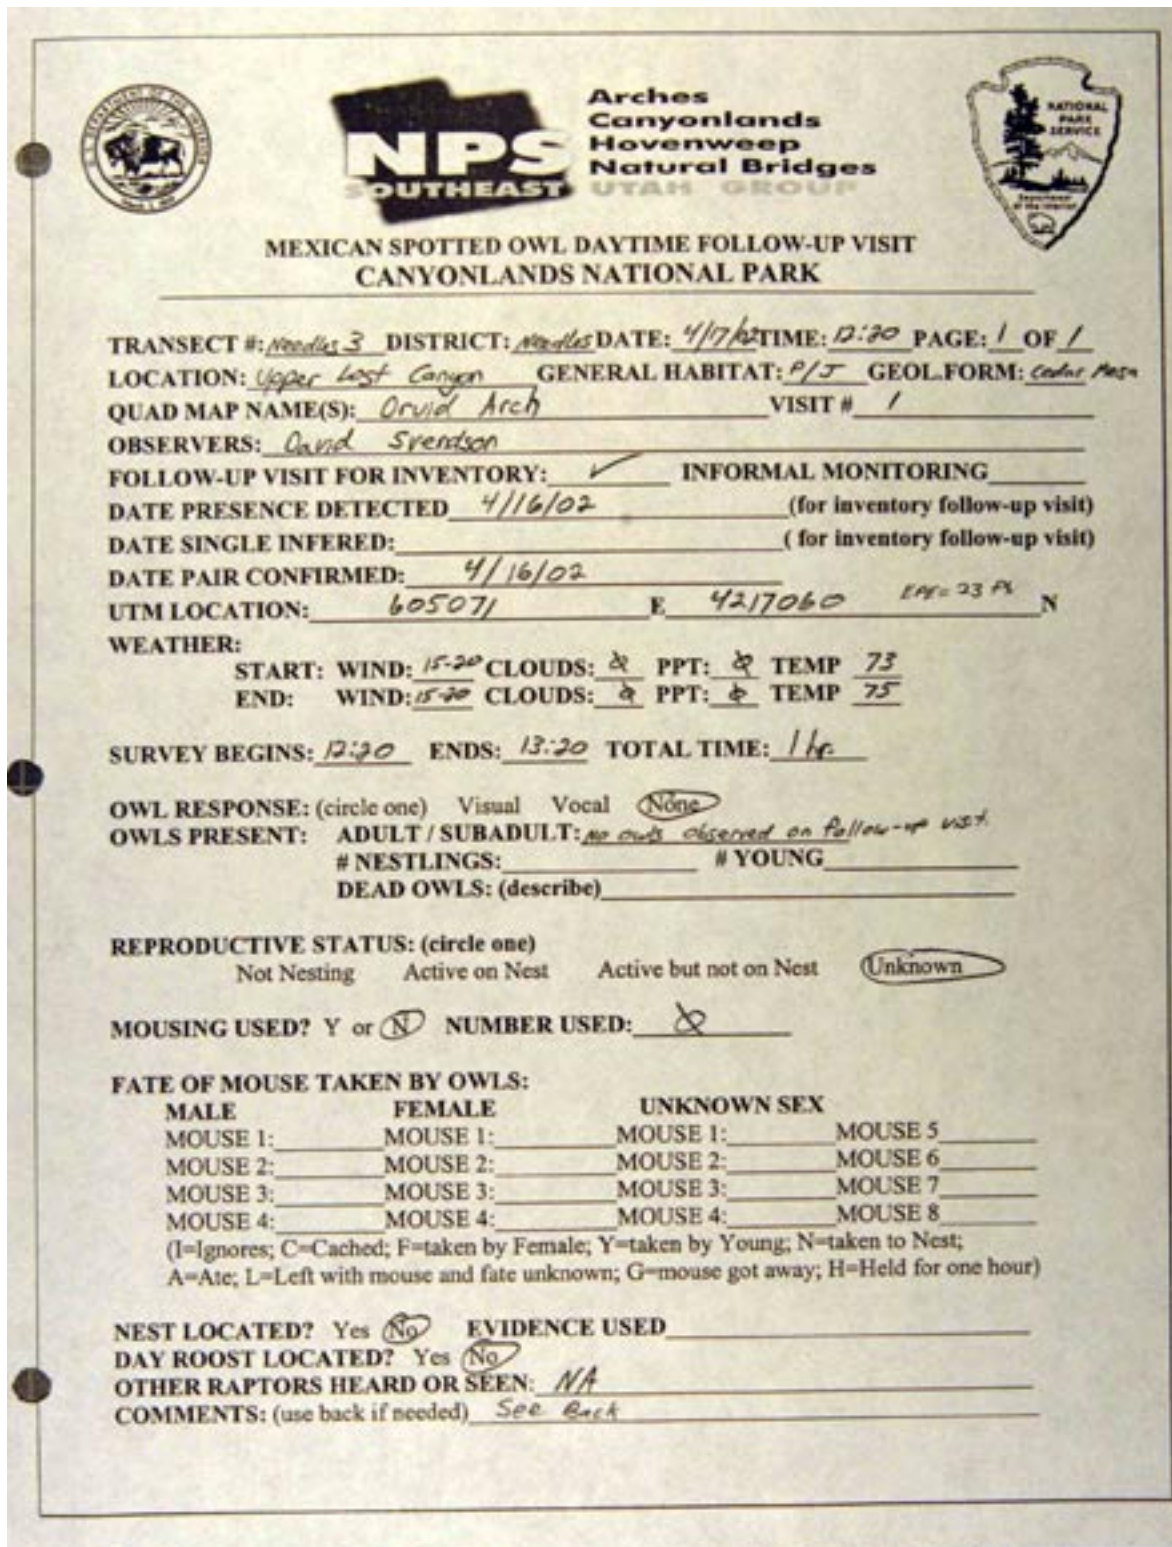 U.S. DEPARTMENT OF THE INTERIOR
March 3, 1849
NPS
SOUTHEAST
Arches
Canyonlands
Hovenweep
Natural Bridges
UTAH GROUP
NATIONAL
PARK
SERVICE
Department
of the Interior
MEXICAN SPOTTED OWL DAYTIME FOLLOW-UP VISIT
CANYONLANDS NATIONAL PARK
TRANSECT #: Needles 3 DISTRICT: Needles DATE: 4/17/02 TIME: 12:20 PAGE: 1 OF 1
LOCATION: Upper Lost Canyon GENERAL HABITAT: P/J GEOL.FORM: Cedar Mesa
QUAD MAP NAME(S): Druid Arch VISIT # 1
OBSERVERS: David Svendson
FOLLOW-UP VISIT FOR INVENTORY: ✓ INFORMAL MONITORING
DATE PRESENCE DETECTED 4/16/02 (for inventory follow-up visit)
DATE SINGLE INFERED: ( for inventory follow-up visit)
DATE PAIR CONFIRMED: 4/16/02
UTM LOCATION: 605071 E 4217060 = 23 N
WEATHER:
START: WIND: 15-20 CLOUDS: Ø PPT: Ø TEMP 73
END: WIND: 15-20 CLOUDS: Ø PPT: Ø TEMP 75
SURVEY BEGINS: 12:20 ENDS: 13:20 TOTAL TIME: 1 hr.
OWL RESPONSE: (circle one) Visual Vocal None
OWLS PRESENT: ADULT / SUBADULT: No owls observed on follow-up visit.
# NESTLINGS: # YOUNG
DEAD OWLS: (describe)
REPRODUCTIVE STATUS: (circle one)
Not Nesting Active on Nest Active but not on Nest Unknown
MOUSING USED? Y or N NUMBER USED: Ø
FATE OF MOUSE TAKEN BY OWLS:
MALE FEMALE UNKNOWN SEX
MOUSE 1: MOUSE 1: MOUSE 1: MOUSE 5
MOUSE 2: MOUSE 2: MOUSE 2: MOUSE 6
MOUSE 3: MOUSE 3: MOUSE 3: MOUSE 7
MOUSE 4: MOUSE 4: MOUSE 4: MOUSE 8
(I=Ignores; C=Cached; F=taken by Female; Y=taken by Young; N=taken to Nest;
A=Ate; L=Left with mouse and fate unknown; G=mouse got away; H=Held for one hour)
NEST LOCATED? Yes No EVIDENCE USED
DAY ROOST LOCATED? Yes No
OTHER RAPTORS HEARD OR SEEN: NA
COMMENTS: (use back if needed) See Back